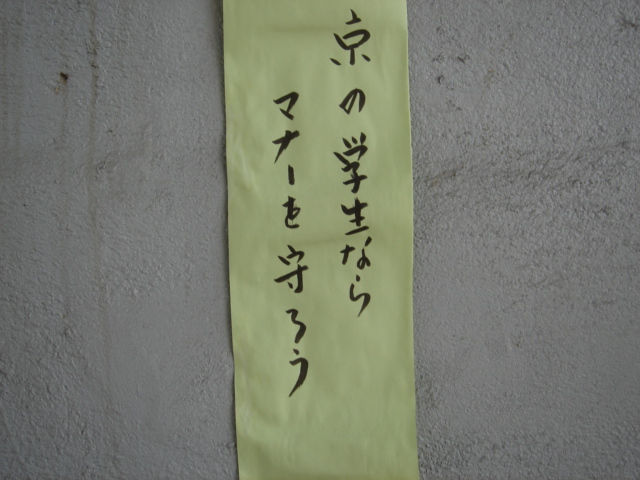 京の学生なら
マナーを守ろう